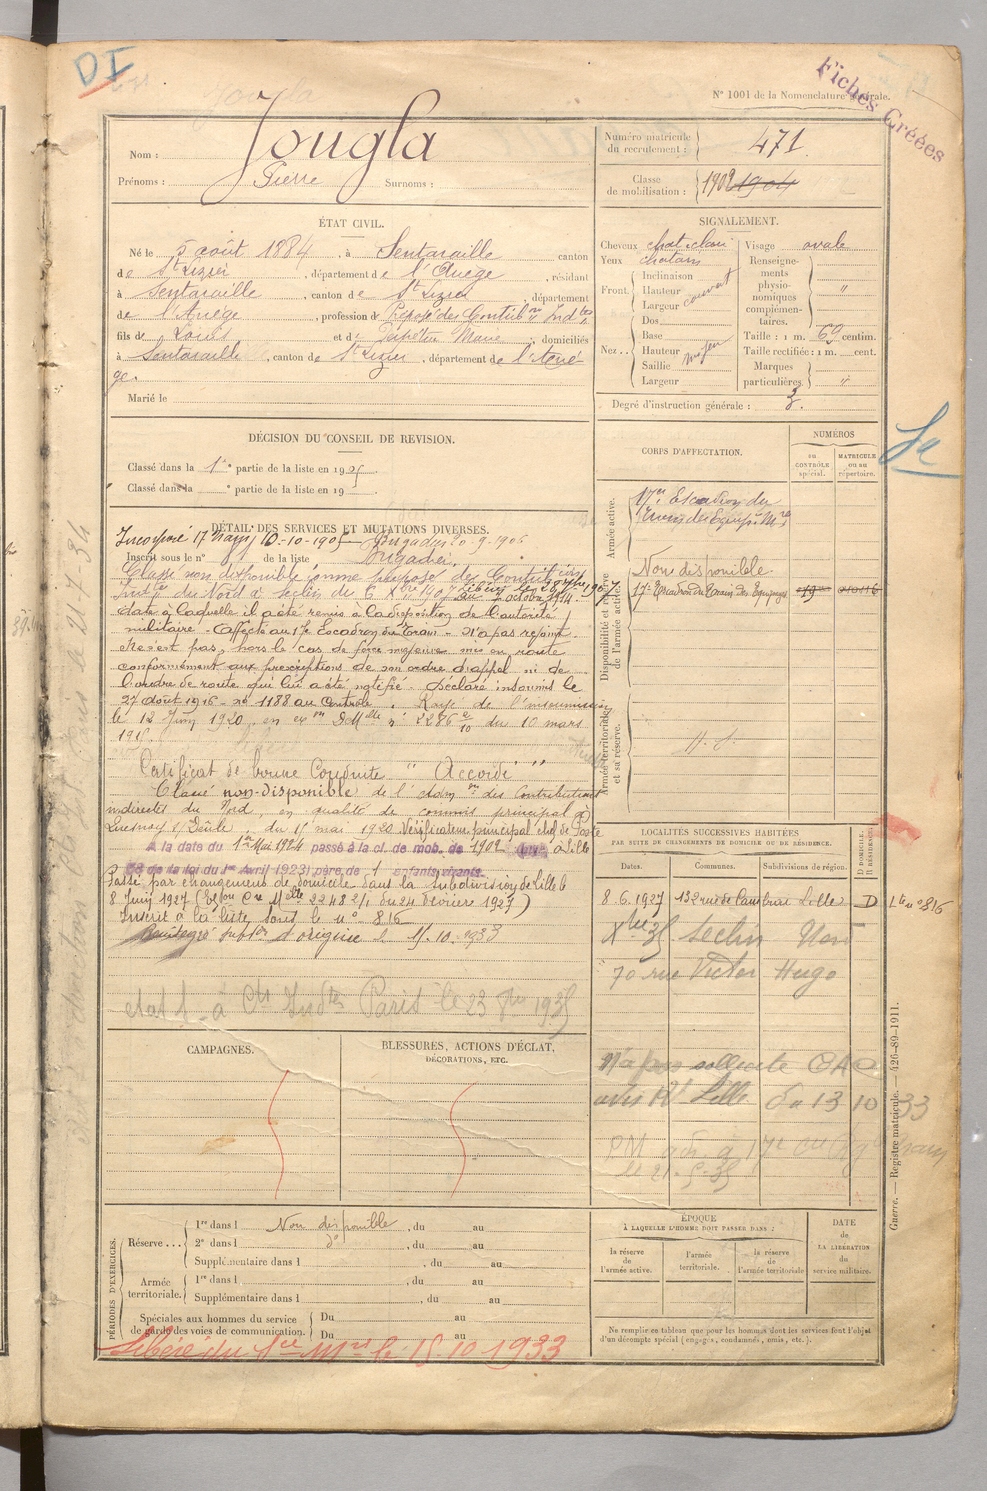 DI
Fiches Créées
N° 1001 de la Nomenclature générale.
Nom : Jougla
Prénoms : Pierre Surnoms :
Numéro matricule du recrutement : 471
Classe de mobilisation : 1902 1904
ÉTAT CIVIL.
Né le 5 août 1884, à Sentaraille canton
de St Lizier, département de l'Ariège, résidant
à Sentaraille, canton de St Lizier, département
de l'Ariège, profession de Préposé des Contribons Indtes
fils de Louis et de Marie, domiciliés
à Sentaraille, canton de St Lizier, département de l'Ariè-
ge.
Marié le
SIGNALEMENT.
Cheveux chat. clair
Yeux chatains
Front. Inclinaison
Hauteur
Largeur
couvert
Nez.. Dos
Base
Hauteur
Saillie
Largeur
moyen
Visage ovale
Renseignements physionomiques complémentaires. "
Taille : 1 m. 69 centim.
Taille rectifiée : 1 m. cent.
Marques particulières "
Degré d'instruction générale : 3.
DÉCISION DU CONSEIL DE REVISION.
Classé dans la 1re partie de la liste en 1905
Classé dans la ° partie de la liste en 19
DÉTAIL DES SERVICES ET MUTATIONS DIVERSES.
Incorporé 10-10-1905 Brigadier 20-9-1906
Inscrit sous le n° de la liste Brigadier.
Classé non disponible comme préposé des Contributions
Indtes du Nord à Seclin du 6 Xbre 1907 au 2 octobre 1914
Libéré le 28 7bre 1907
date à laquelle il a été remis à la disposition de l'autorité
militaire - affecté au 17e Escadron du Train - N'a pas rejoint.
Ne s'est pas, hors le cas de force majeure mis en route
conformément aux prescriptions de son ordre d'appel ni de
l'ordre de route qui lui a été notifié - Déclaré insoumis le
27 août 1916 - n° 1188 au Contrôle. Rayé de l'insoumission
le 12 Juin 1920, en ex on D. Mlle n° 2286 2/10 du 10 mars
191
Certificat de bonne Conduite " Accordé "
Classé non-disponible de l'Adm on des Contributions
indirectes du Nord, en qualité de commis principal à
Quesnoy s/ Deûle, du 15 mai 1920 Vérificateur principal chef de Poste
A la date du 1er Mai 1924 passé à la cl. de mob. de 1902 à Lille
58 de la loi du 1er Avril 1923) père de 1 enfants vivants.
Passé par changement de domicile dans la subdivision de Lille le
8 Juin 1927 (Exon Cre Melle 2248 2/1 du 24 février 1927)
Inscrit à la liste sous le n° 816
Réintégré subdon d'origine le 15.10.1933
à Cts Indtes Paris le 23 1935
CORPS D'AFFECTATION.
NUMÉROS
au CONTRÔLE spécial.
MATRICULE ou au répertoire.
Armée active.
17e Escadron du
Train des Equipes Mres
Disponibilité et réserve de l'armée active.
Non disponible
17e Escadron du Train des Equipages
Armée territoriale et sa réserve.
LOCALITÉS SUCCESSIVES HABITÉES
PAR SUITE DE CHANGEMENTS DE DOMICILE OU DE RÉSIDENCE.
Dates. Communes. Subdivisions de région.
D DOMICILE. R RÉSIDENCE.
8.6.1927 132 rue de Cambrai Lille D Lte n° 816
Xbre 35 Seclin Nord
70 rue Victor Hugo
N'a pas sollicité CAC
avis Rt Lille du 13 10 33
CAMPAGNES.
BLESSURES, ACTIONS D'ÉCLAT,
DÉCORATIONS, ETC.
PÉRIODES D'EXERCICES.
Réserve... 1re dans l Non disponible, du au
2e dans l d°, du au
Supplémentaire dans l , du au
Armée territoriale. 1re dans l , du au
Supplémentaire dans l , du au
Spéciales aux hommes du service de garde des voies de communication. Du au
Du au
Libéré du Sce Mre le 15 10 1933
ÉPOQUE
À LAQUELLE L'HOMME DOIT PASSER DANS :
la réserve de l'armée active.
l'armée territoriale.
la réserve de l'armée territoriale
DATE de LA LIBÉRATION du service militaire.
Ne remplir ce tableau que pour les hommes dont les services font l'objet d'un décompte spécial (engagés, condamnés, omis, etc.).
Guerre. — Registre matricule. — 426-89-1911.